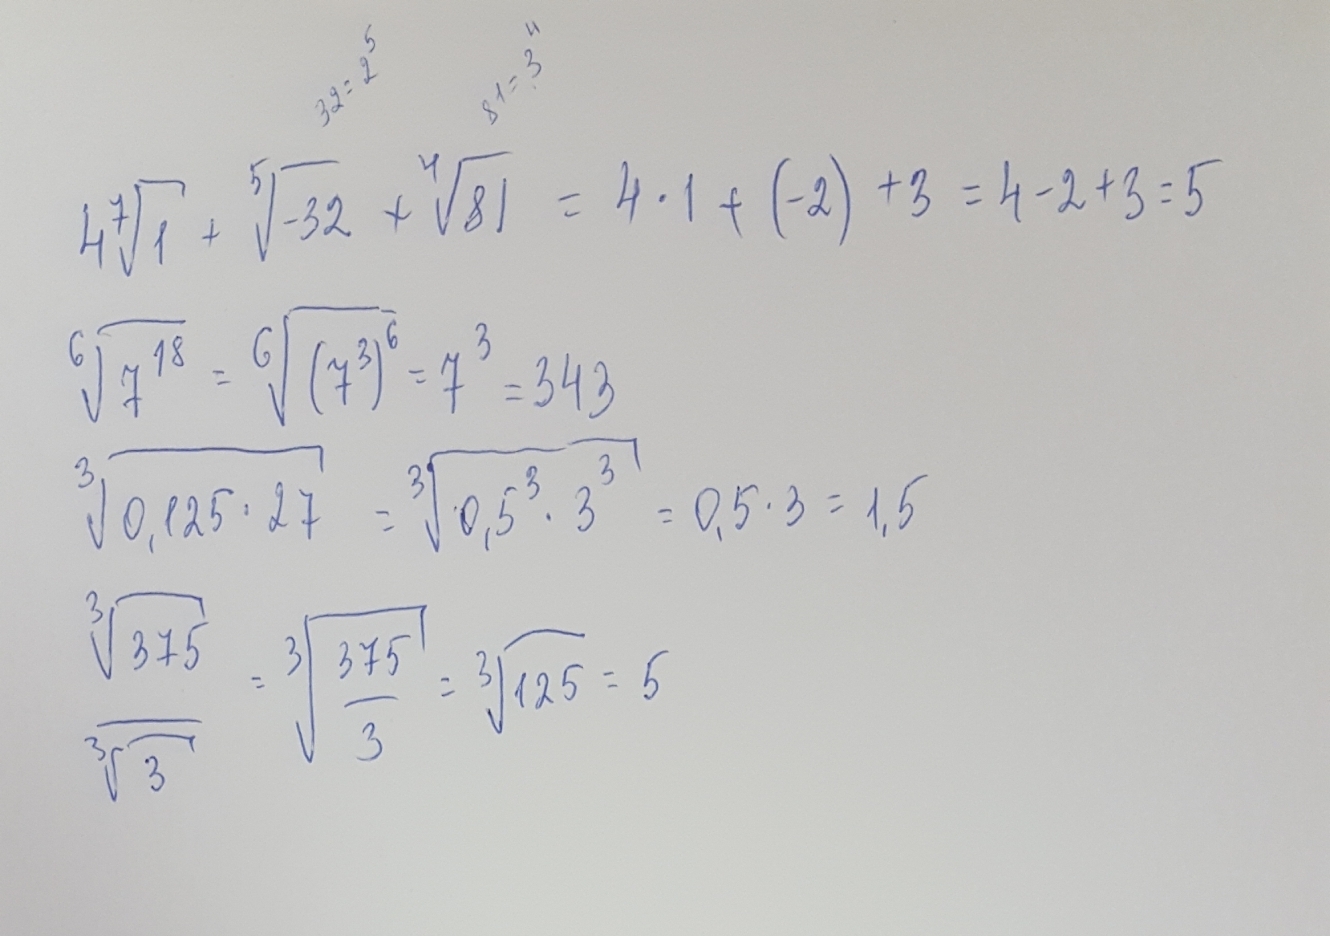 32=2⁵ 81=3⁴
4⁷√1 + ⁵√-32 + ⁴√81 = 4·1 + (-2) +3 = 4-2+3=5
⁶√7¹⁸ = ⁶√(7³)⁶ = 7³ = 343
³√0,125·27 = ³√0,5³·3³ = 0,5·3 = 1,5
³√375/³√3 = ³√375/3 = ³√125 = 5